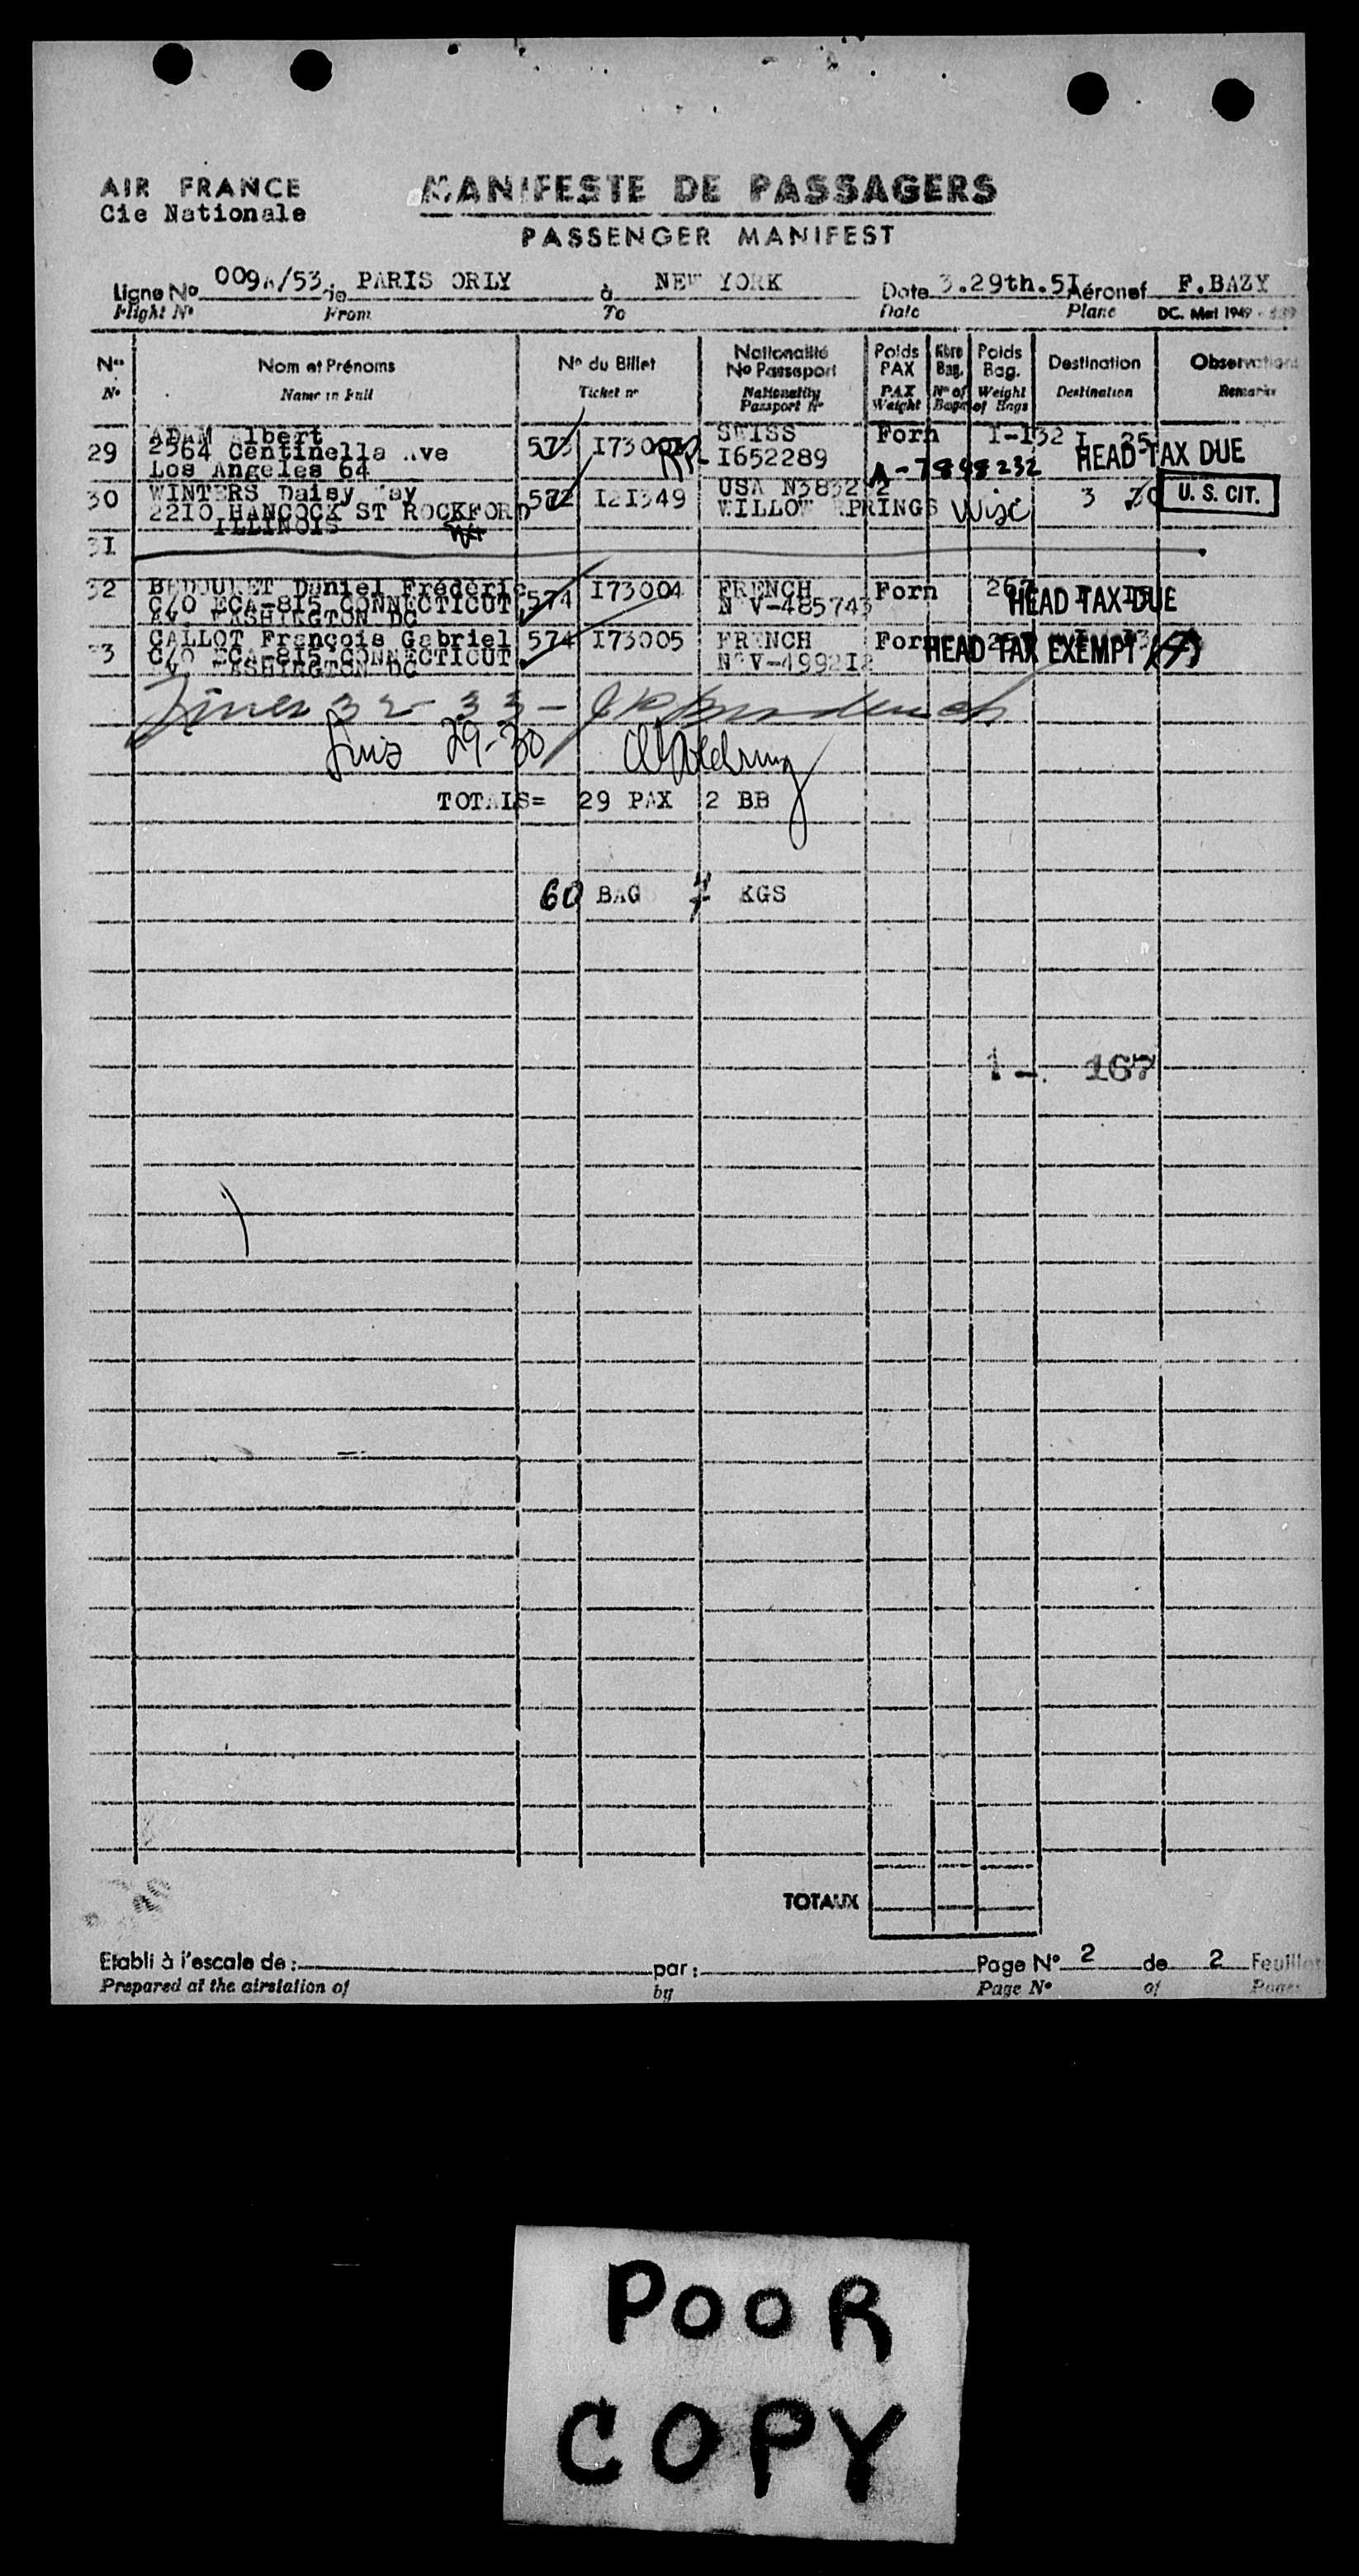 AIR FRANCE
Cie Nationale
MANIFESTE DE PASSAGERS
PASSENGER MANIFEST
Ligne No 009A/53 de PARIS ORLY à NEW YORK Date 3.29th.5I Aéronef F.BAZY
Flight No From To Date Plane DC. Mat 1949
Nos Nom et Prénoms No du Billet Nationalité No Passeport Poids PAX Nbre Bag. Poids Bag. Destination Observations
No Name in Full Ticket no Nationality Passport No PAX Weight No of Bags Weight of Bags Destination Remarks
29 ADAM Albert 573 SWISS Forn I-I32 I 25 HEAD TAX DUE
2564 Centinella Ave RP- I652289 A-7898232
Los Angeles 64
30 WINTERS Daisy May 572 I2I349 USA N383292 3 70 U. S. CIT.
22I0 HANCOCK ST ROCKFORD WILLOW SPRINGS Wisc
ILLINOIS
3I
32 BEDOURET Daniel Fréderic 574 I73004 FRENCH Forn HEAD TAX DUE
C/O ECA-8I5 CONNECTICUT NoV-485743
AV. WASHINGTON DC
33 CALLOT François Gabriel 574 I73005 FRENCH Forn HEAD TAX EXEMPT (4)
C/O ECA-8I5 CONNECTICUT NoV-4992I2
AV. WASHINGTON DC
Lines 32-33-
Lines 29-30
TOTALS= 29 PAX 2 BB
60 BAG KGS
1 - 167
TOTAUX
Etabli à l'escale de : par : Page No 2 de 2 Feuillets
Prepared at the airstation of by Page No of Pages
POOR
COPY